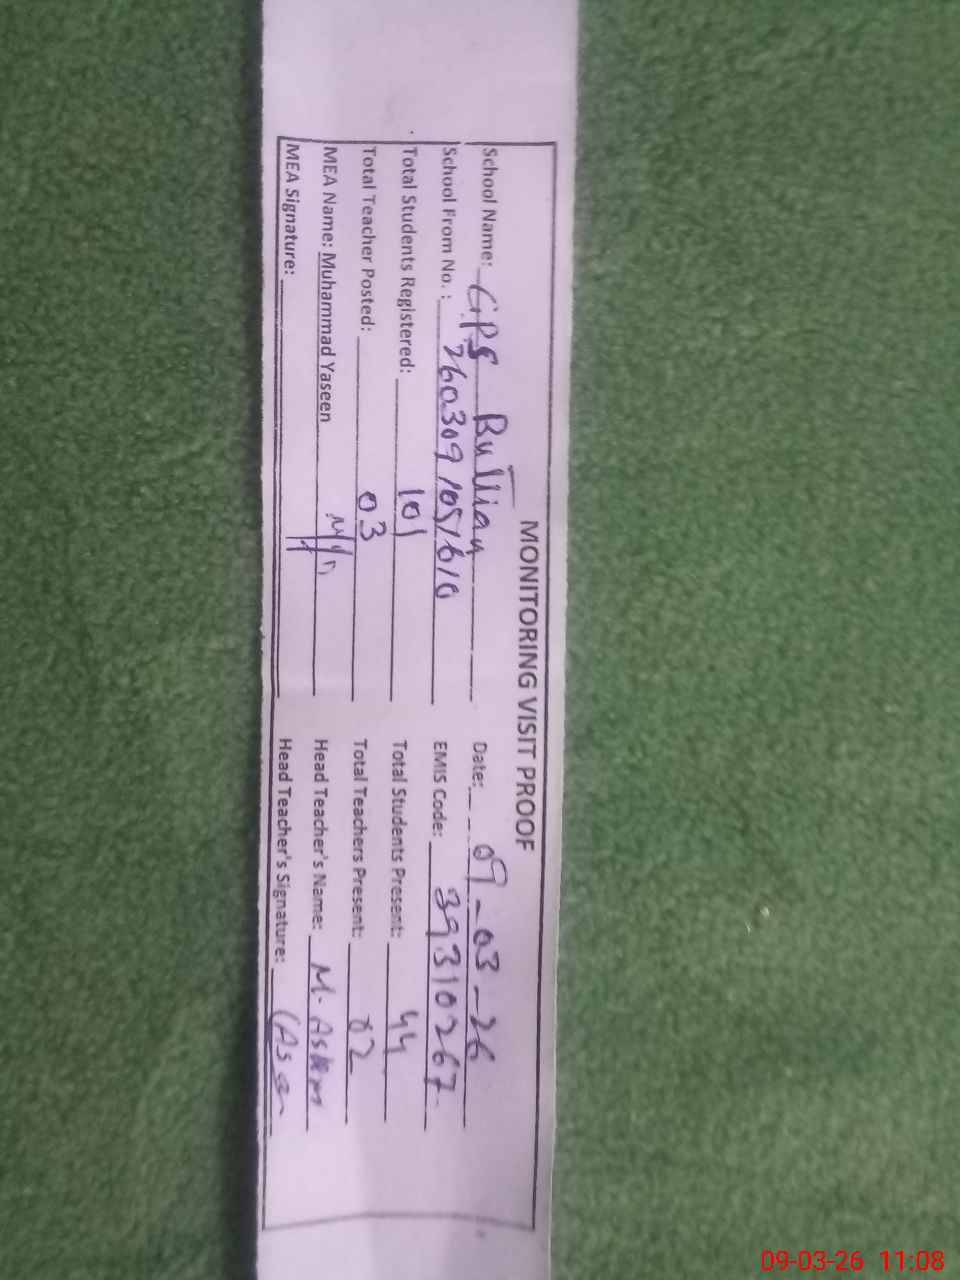 MONITORING VISIT PROOF
School Name: GPS Bullian Date: 09-03-26
School From No. : 2603091051610 EMIS Code: 39310267
Total Students Registered: 101 Total Students Present: 44
Total Teacher Posted: 03 Total Teachers Present: 02
MEA Name: Muhammad Yaseen Head Teacher's Name: M. Aslam
MEA Signature: Head Teacher's Signature:
09-03-26 11:08